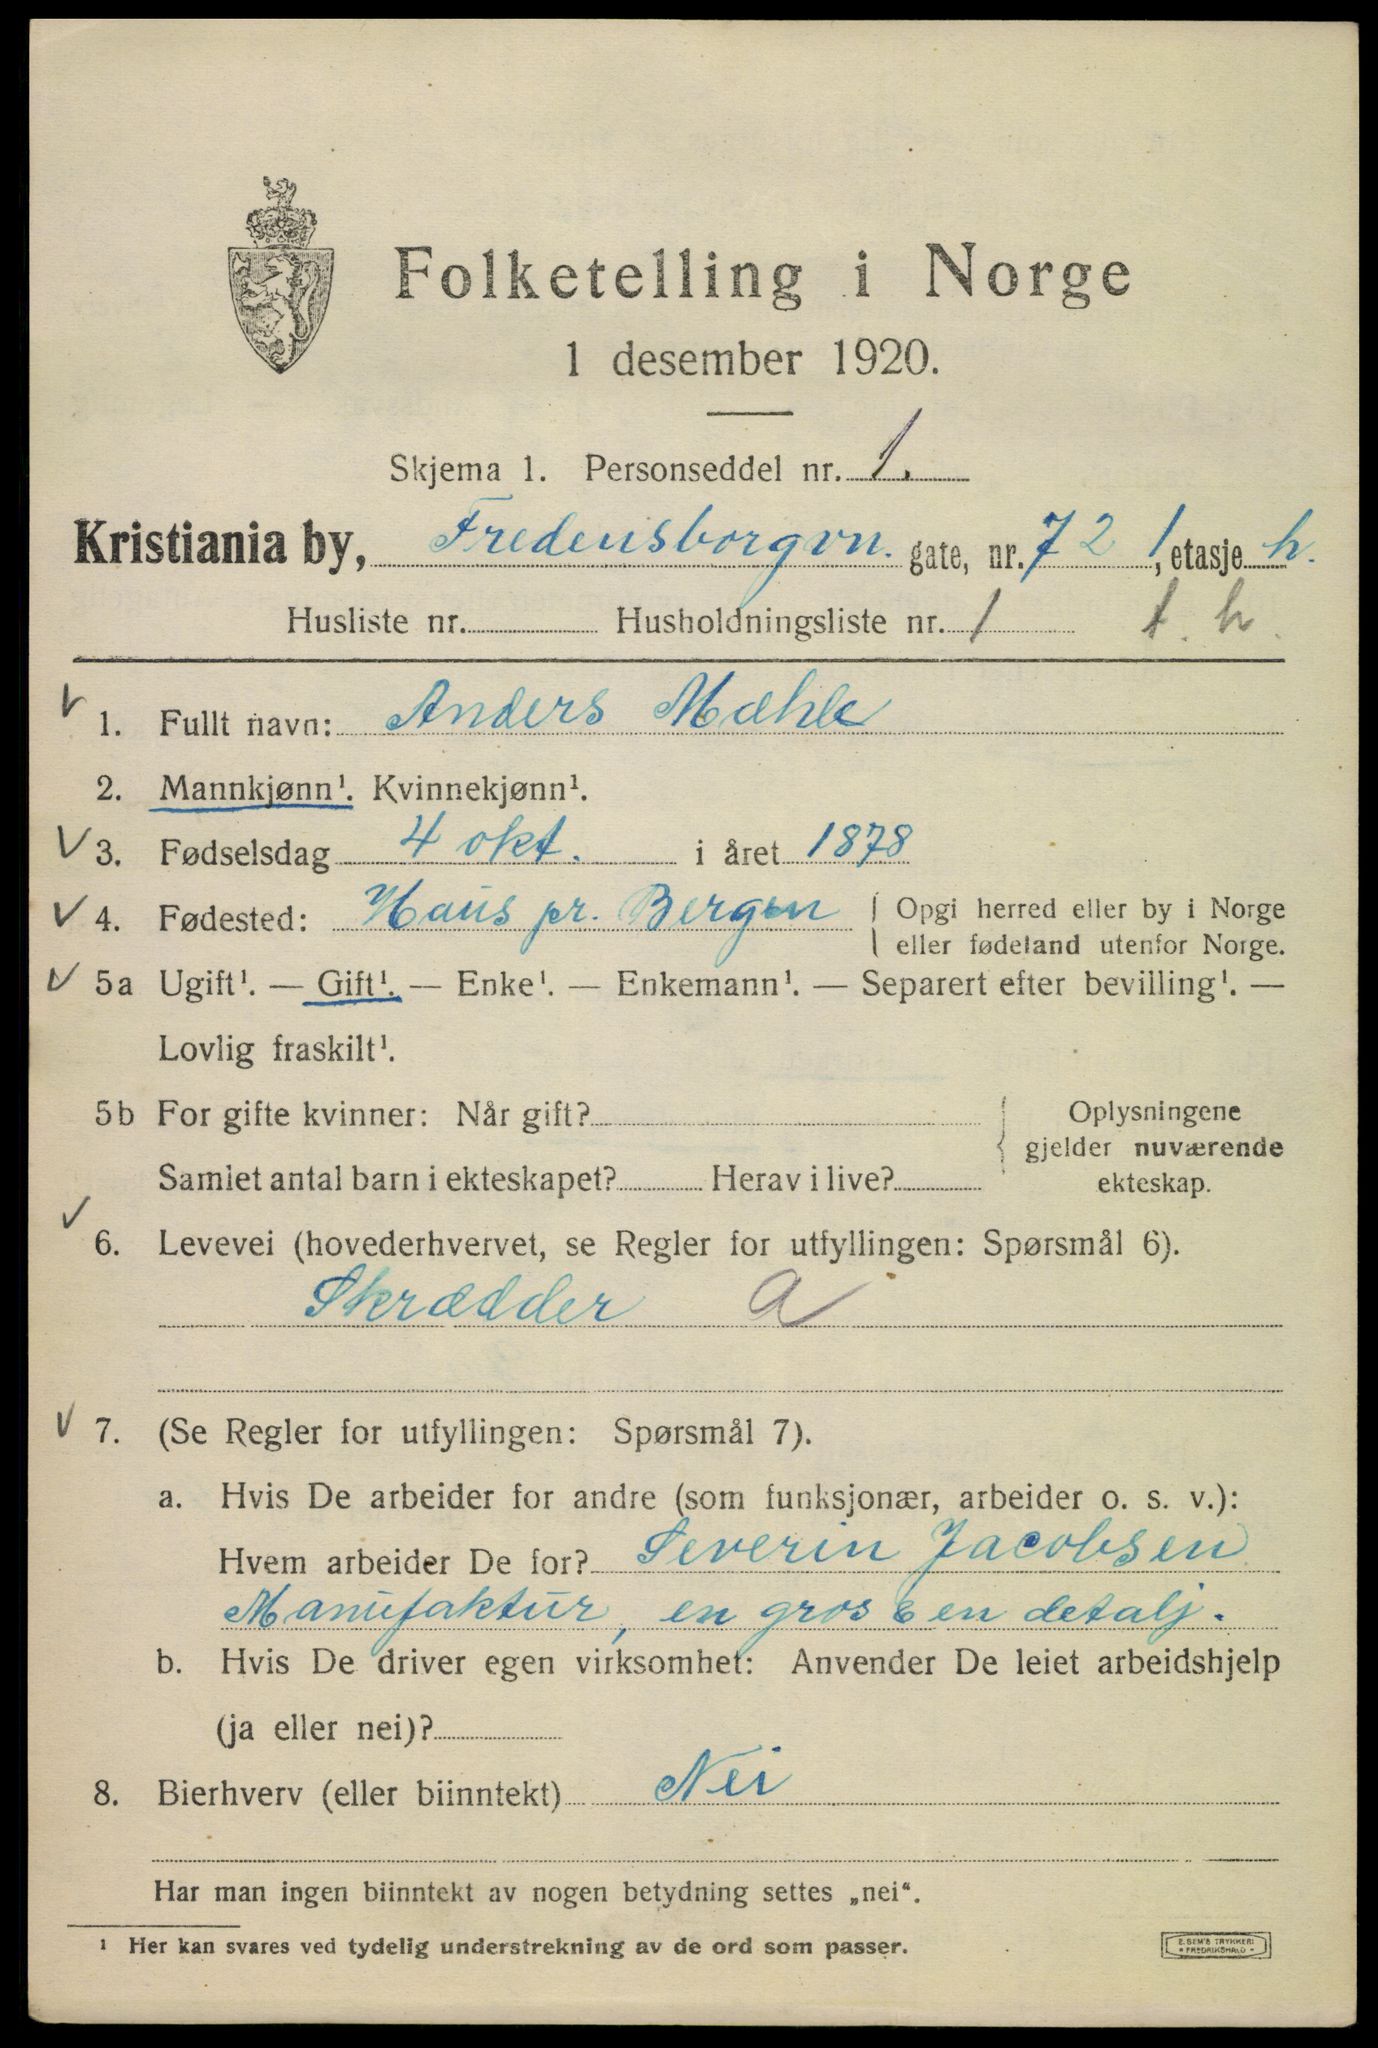 Folketelling i Norge
1 desember 1920.
Skjema 1. Personseddel nr. 1.
Kristiania by, Fredensborgvn. gate, nr. 72 1, etasje h.
Husliste nr. Husholdningsliste nr. 1 1. h.
1. Fullt navn: Anders Mæhle
2. Mannkjønn¹. Kvinnekjønn¹.
3. Fødselsdag 4 okt. i året 1878
4. Fødested: Haus pr. Bergen Opgi herred eller by i Norge
eller fødeland utenfor Norge.
5a Ugift¹. — Gift¹. — Enke¹. — Enkemann¹. — Separert efter bevilling¹. —
Lovlig fraskilt¹.
5b For gifte kvinner: Når gift? Oplysningene
gjelder nuværende
Samlet antal barn i ekteskapet? Herav i live? ekteskap.
6. Levevei (hovederhvervet, se Regler for utfyllingen: Spørsmål 6).
Skrædder a
7. (Se Regler for utfyllingen: Spørsmål 7).
a. Hvis De arbeider for andre (som funksjonær, arbeider o. s. v.):
Hvem arbeider De for? Severin Jacobsen
Manufaktur, en gros & en detalj.
b. Hvis De driver egen virksomhet: Anvender De leiet arbeidshjelp
(ja eller nei)?
8. Bierhverv (eller biinntekt) Nei
Har man ingen biinntekt av nogen betydning settes „nei“.
¹ Her kan svares ved tydelig understrekning av de ord som passer.
E. SEM'S TRYKKERI
• FREDRIKSHALD •